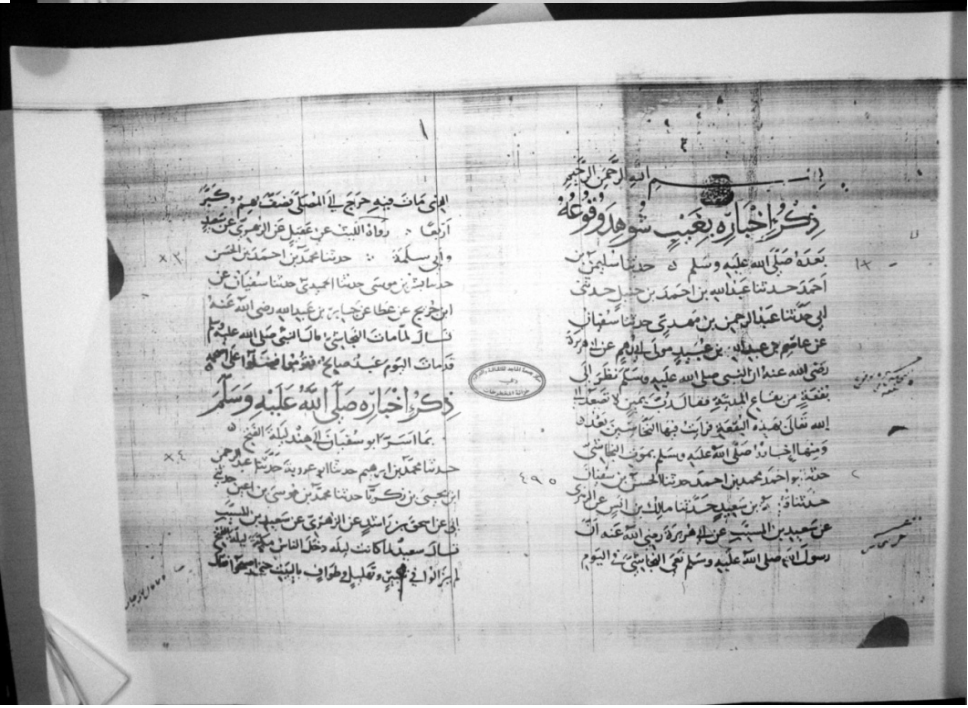 بسم الله الرحمن الرحيم
ذكر اخباره بغيب شوهد وقوعه
بعده صلى الله عليه وسلم حدثنا سليمن بن
احمد حدثنا عبد الله بن احمد بن حنبل حدثني
ابي حدثنا عبد الرحمن بن مهدي حدثنا سفيان
عن عاصم بن عبيد الله عن عبيد مولى ابي رهم عن ابي هريرة
رضي الله عنه ان النبي صلى الله عليه وسلم نظر الى
بقعة من بقاع المدينة فقال رب يمين لا تصعد الى
الله تعالى بهذه البقعة فرايت فيها النخاسين بعد
ومنها اخباره صلى الله عليه وسلم بموت النجاشي
حدثنا ابو احمد محمد بن احمد حدثنا الحسن بن سفيان
حدثنا بن سعيد حدثنا مالك بن انس عن الزهري
عن سعيد بن المسيب عن ابي هريرة رضي الله عنه ان
رسول الله صلى الله عليه وسلم نعى النجاشي في اليوم
١
الذي مات فيه خرج الى المصلى فصف بهم وكبر
اربعا رواه الليث عن عقيل عن الزهري عن سعيد
وابي سلمة حدثنا محمد بن احمد بن الحسن
حدثنا بشر بن موسى حدثنا الحميدي حدثنا سفيان عن
ابن جريج عن عطا عن جابر بن عبد الله رضي الله عنه
قال لما مات النجاشي قال النبي صلى الله عليه وسلم
قد مات اليوم عبد صالح فقوموا فصلوا على اصحمة
ذكر اخباره صلى الله عليه وسلم
بما اسر ابو سفيان الى هند ليلة الفتح
حدثنا محمد بن ابرهيم حدثنا ابو عروبة حدثنا عبد الرحمن
ابن يحيى بن زكريا حدثنا محمد بن موسى بن اعين حدثني
ابي عن اسحق بن راشد عن الزهري عن سعيد بن المسيب
قال سعيد لما كانت ليلة دخل الناس مكة ليلة الفتح
لم يزالوا في تكبير وتهليل وطواف بالبيت حتى اصبحوا فقال
٤٩٥